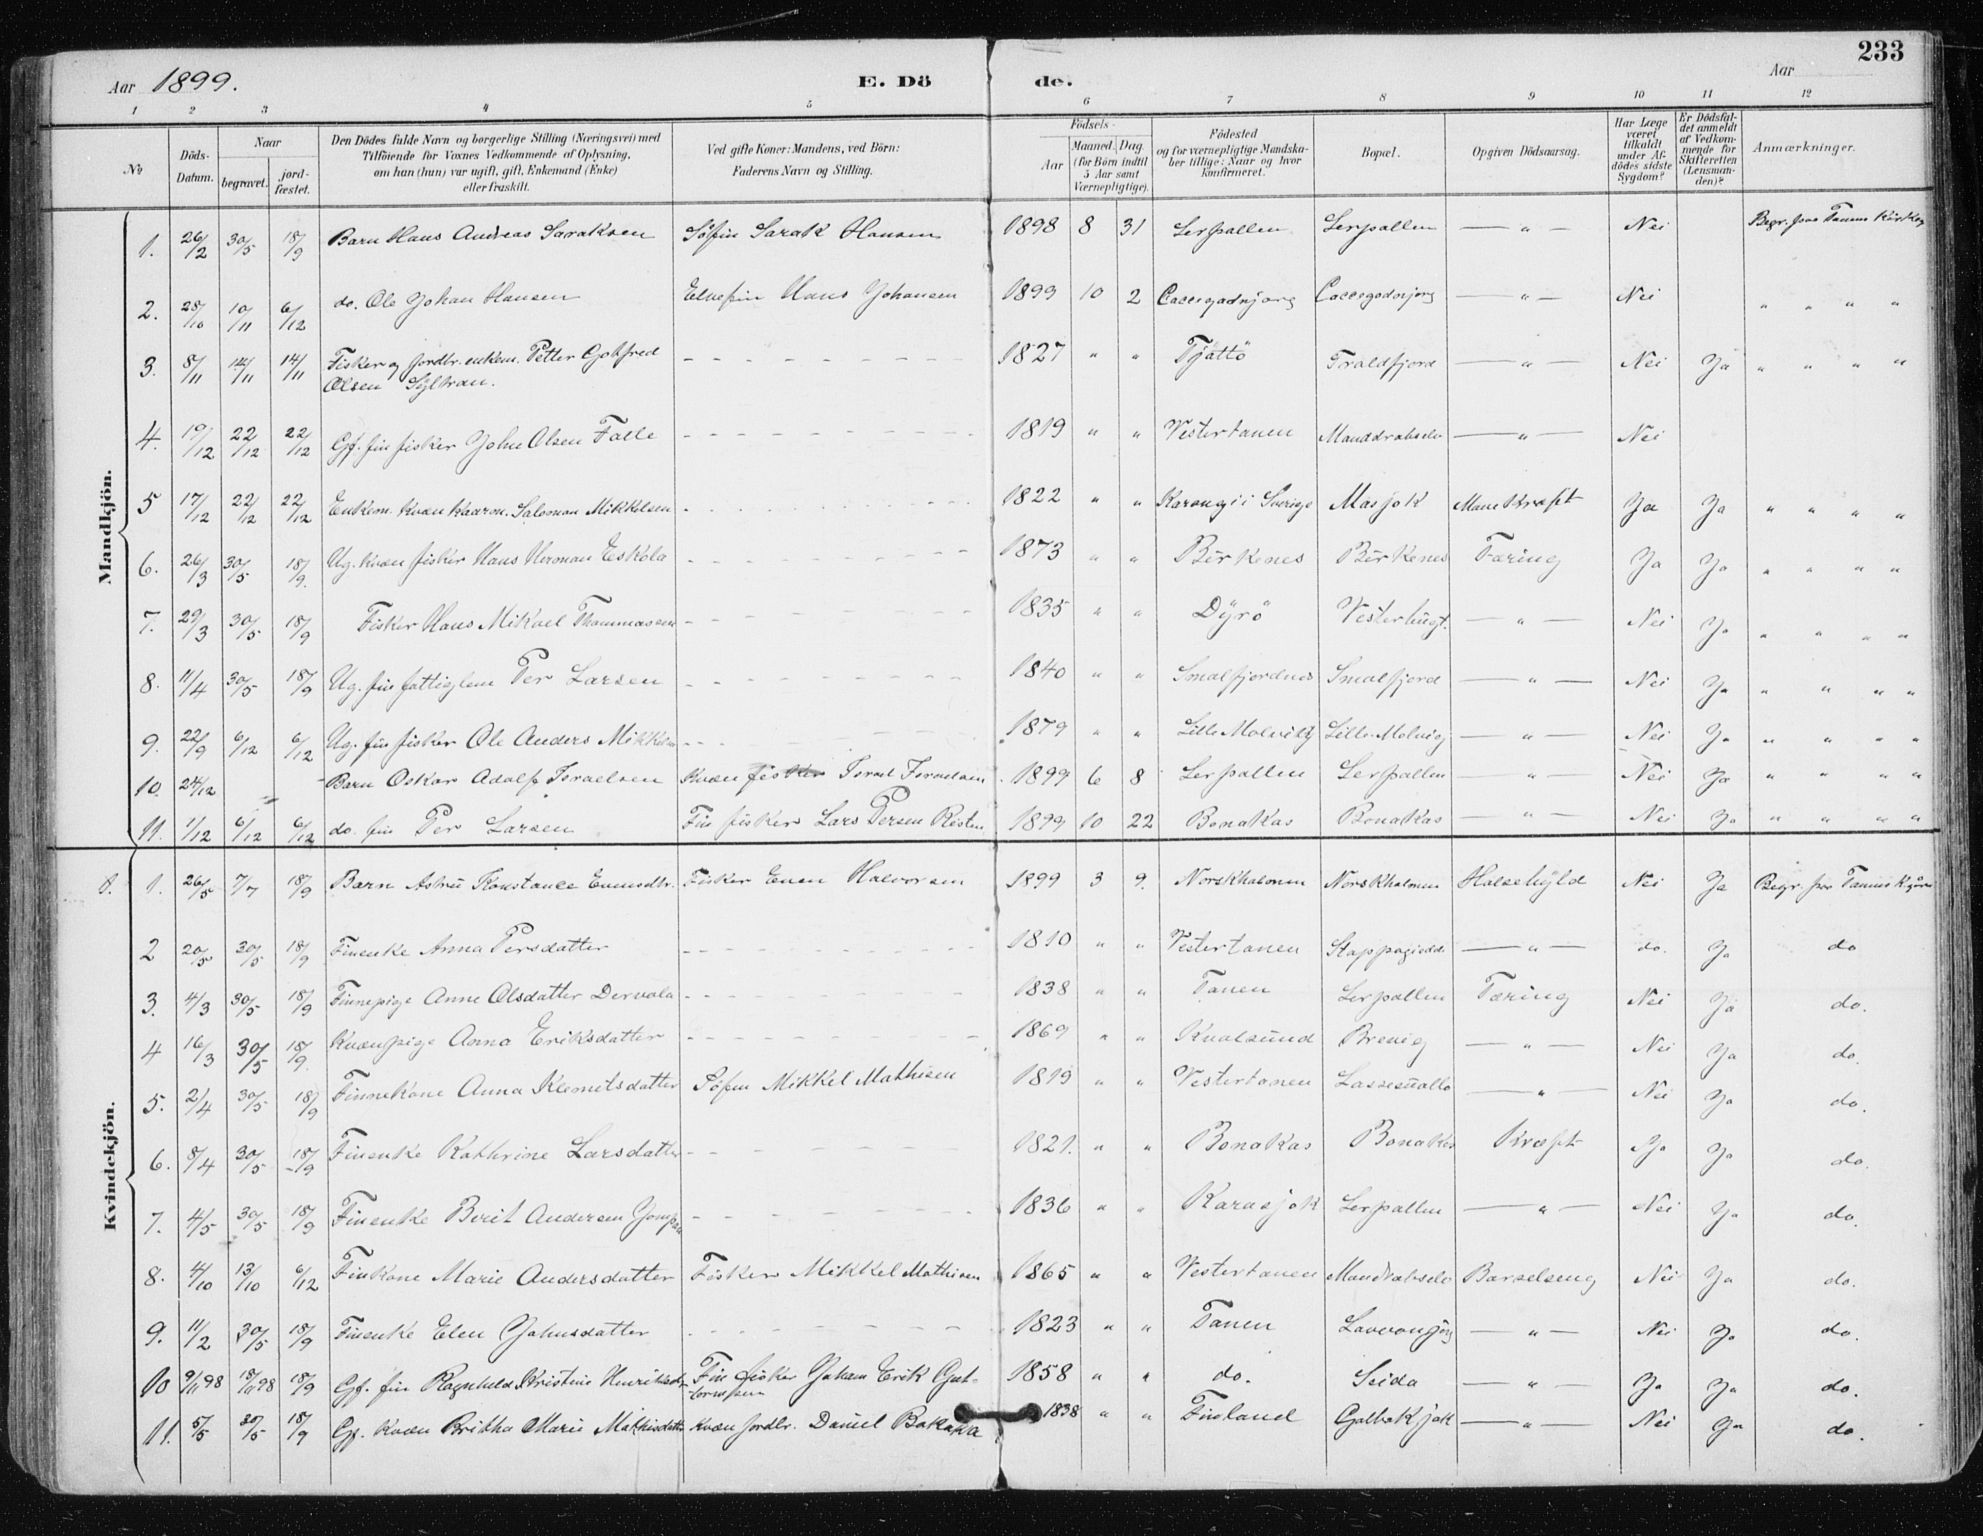 233
Aar 1899. E. Dö de. Aar
1 2 3 4 5 6 7 8 9 10 11 12
No Döds-Datum. Naar begravet. jord-fæstet. Den Dödes fulde Navn og borgerlige Stilling (Næringsvei) med Tilföiende for Voxnes Vedkommende af Oplysning, om han (hun) var ugift, gift, Enkemand (Enke) eller fraskilt. Ved gifte Koner: Mandens, ved Börn: Faderens Navn og Stilling. Födsels- Aar Maaned. Dag. (for Börn indtil 5 Aar samt Værnepligtige). Födested og for værnepligtige Mandskaber tillige: Naar og hvor konfirmeret. Bopæl. Opgiven Dödsaarsag. Har Læge været tilkaldt under Afdödes sidste Sygdom? Er Dödsfaldet anmeldt af Vedkommende for Skifteretten (Lensmanden)? Anmærkninger.
Mandkjön.
1. 26/2 30/5 18/9 Barn Hans Andreas Saraksen Söfin Sarak Hansen 1898 8 31 Lerpollen Lerpollen — " — Nei Begr. paa Tanens Kirkeg
2. 28/10 10/11 6/12 do. Ole Johan Hansen Elvefin Hans Johansen 1899 10 2 — " — Nei " " " "
3. 8/11 14/11 14/11 Fisker og jordbr. enkem. Petter Gotfred Olsen - - - 1827 " " Tjöttö Traldfjord — " — Nei Ja " " " "
4. 19/12 22/12 22/12 Gf. fin fisker John Olsen Falle - - - 1819 " " Vestertanen — " — Nei
5 17/12 22/12 22/12 Enkem. kvæn Salomon Mikkelsen - - - 1822 " " Karungi i Sverige Masjok Ja Ja " " " "
6. 26/3 30/5 18/9. Ug. kvæn fisker Hans Herman Eskola - - - 1873 " " Birkenes Birkenes Tæring Ja Ja " " " "
7. 29/3 30/5 18/9 Fisker Hans Mikael Thommassen - - - 1835 " " Dyrö Vesterbugt. — " — Nei Ja " " " "
8. 11/4 30/5 18/9 Ug. fin fattiglem Per Larsen - - - 1840 " " Smalfjordnes Smalfjord — " — Nei Ja " " " "
9. 22/9 6/12 6/12 Ug. fin fisker Ole Anders Mikkelsen - - - 1879 " " Lille Molvik Lille Molvig — " — Nei Ja " " " "
10. 24/12 Barn Oskar Adolf Israelsen Kvæn fisker Israel Israelsen 1899 6 8 Lerpollen Lerpollen — " — Nei Ja " " " "
11. 1/12 6/12 6/12 do. fin Per Larsen Fin fisker Lars Persen Risten 1899 10 22 Bonakas Bonakas — " — Nei Ja " " " "
Kvindekjön.
1. 26/5 7/7 18/9 Barn Konstance Evensdtr. Fisker Even Halvorsen 1899 3 9. Norskholmen Norskholmen Halsebyld Nei Ja Begr. paa Tanens
2 20/5 30/5 18/9 Finenke Anna Persdatter - - - 1810 " " Vestertanen Stappogiedde — " — do. Ja do
3. 4/3 30/5 18/9 Finnepige Anne Olsdatter Dervola - - - 1838 " " Tanen Lerpollen Tæring Nei Ja do.
4 16/3 30/5 18/9. Kvænpige Anna Eriksdatter - - - 1869 " " Kvalsund Brevig — " — Nei Ja do.
5. 2/4 30/5 18/9 Finnekone Anna Klemitsdatter Söfin Mikkel Mathisen 1819 " " Vestertanen — " — Nei Ja do.
6. 8/4 30/5 18/9 Finenke Kathrine Larsdatter - - - 1821. " " Bonakas Bonakas Kræft Ja Ja do.
7. 4/5 30/5 18/9 Finenke Berit Andersen - - - 1836 " " Karasjok Lerpollen — " — Nei Ja do.
8. 4/10 13/10 6/12 Finkone Marie Andersdatter Fisker Mikkel Mathisen 1865 " " Vestertanen Barselseng Nei Ja do.
9. 11/2 30/5 18/9 Finenke Elen Johnsdatter - - - 1823 " " Tanen — " — Nei Ja do.
10 9/11 98 18/11 98 18/9 Gf. fin Ragnhild Kristine Henriksdtr Fin fisker Johan Erik 1858 " " do. Seida — " — Ja Ja do.
11. 5/5 30/5 18/9 Gf. kvæn Britha Marie Mathisdatter kvæn jordbr. Daniel 1838 " " Finland Galbokjok — " — Nei Ja do.